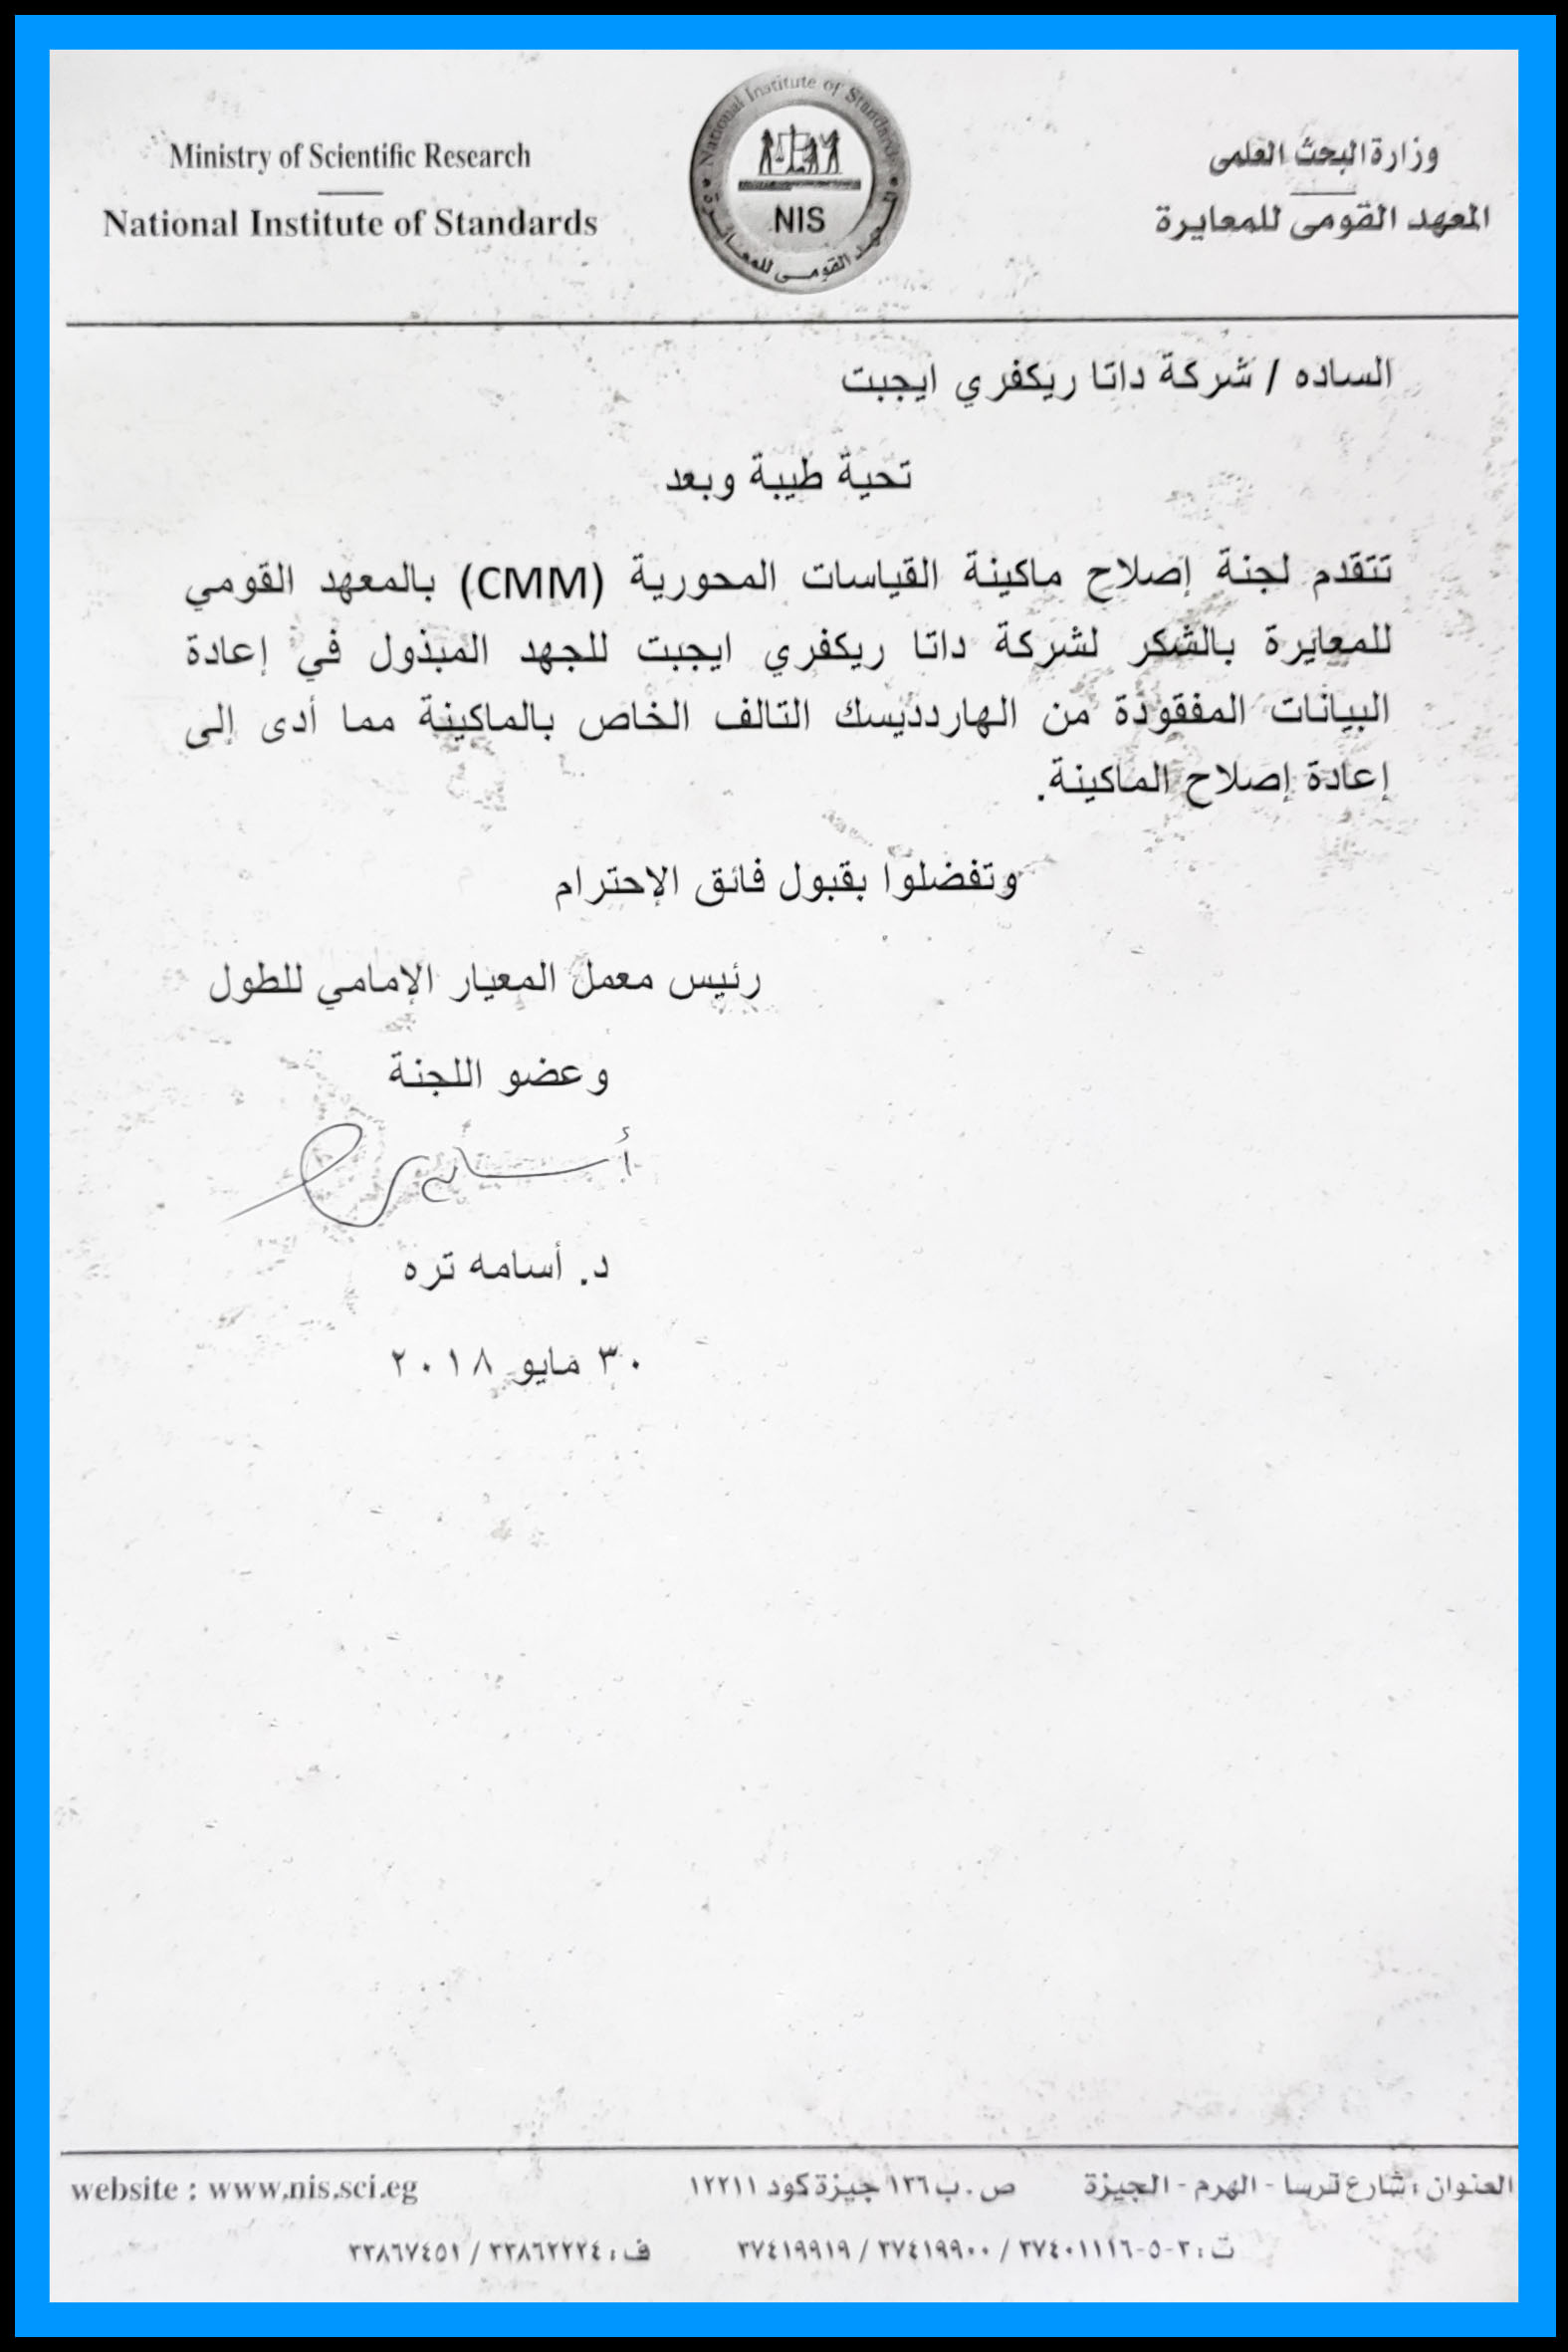 Ministry of Scientific Research
National Institute of Standards
National Institute of Standards
NIS
المعهد القومى للمعايرة
وزارة البحث العلمى
المعهد القومى للمعايرة
الساده / شركة داتا ريكفري ايجبت
تحية طيبة وبعد
تتقدم لجنة إصلاح ماكينة القياسات المحورية (CMM) بالمعهد القومي
للمعايرة بالشكر لشركة داتا ريكفري ايجبت للجهد المبذول في إعادة
البيانات المفقودة من الهاردديسك التالف الخاص بالماكينة مما أدى إلى
إعادة إصلاح الماكينة.
وتفضلوا بقبول فائق الإحترام
رئيس معمل المعيار الإمامي للطول
وعضو اللجنة
د. أسامه تره
٣٠ مايو ٢٠١٨
العنوان : شارع ترسا - الهرم - الجيزة ص . ب ١٣٦ جيزة كود ١٢٢١١
website : www.nis.sci.eg
ت : ٣-٥-٣٧٤٠١١١٦ / ٣٧٤١٩٩٠٠ / ٣٧٤١٩٩١٩
ف : ٣٣٨٦٢٢٢٤ / ٣٣٨٦٧٤٥١